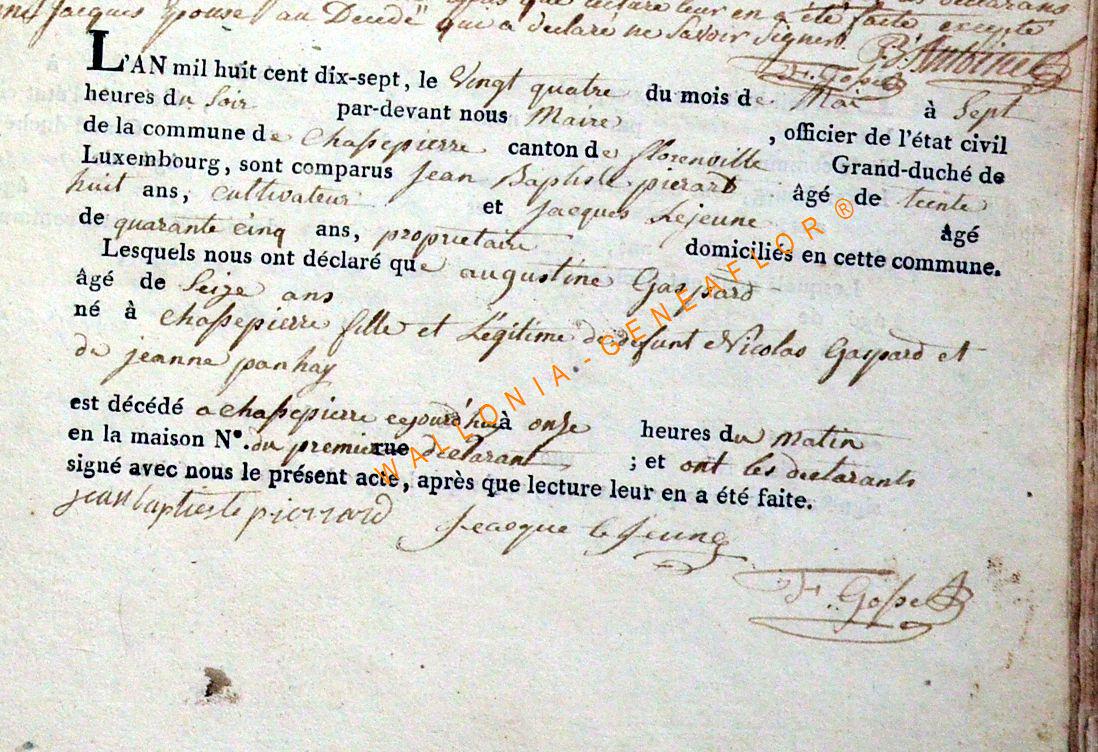 Jacques Epouse au Decédé que a declaré ne Savoir Signer.
L'AN mil huit cent dix-sept, le Vingt quatre du mois de Mai à Sept
heures du Soir par-devant nous Maire , officier de l'état civil
de la commune de Chassepierre canton de florenville Grand-duché de
Luxembourg, sont comparus Jean Baptiste pierard âgé de trente
huit ans, cultivateur et Jacques Lejeune âgé
de quarante cinq ans, proprietaire domiciliés en cette commune.
Lesquels nous ont déclaré que augustine Gaspard
âgé de Seize ans
né à chassepierre fille et Légitime de defunt Nicolas Gaspard et
de jeanne panhay
est décédé a chassepierre cejourd'hui à onze heures du matin
en la maison N°. du premier rue déclarant ; et ont les declarants
signé avec nous le présent acte, après que lecture leur en a été faite.
jean baptieste pierrard Jeacque le Jeune
F. Gosse
WALLONIA-GENEAFLOR ®